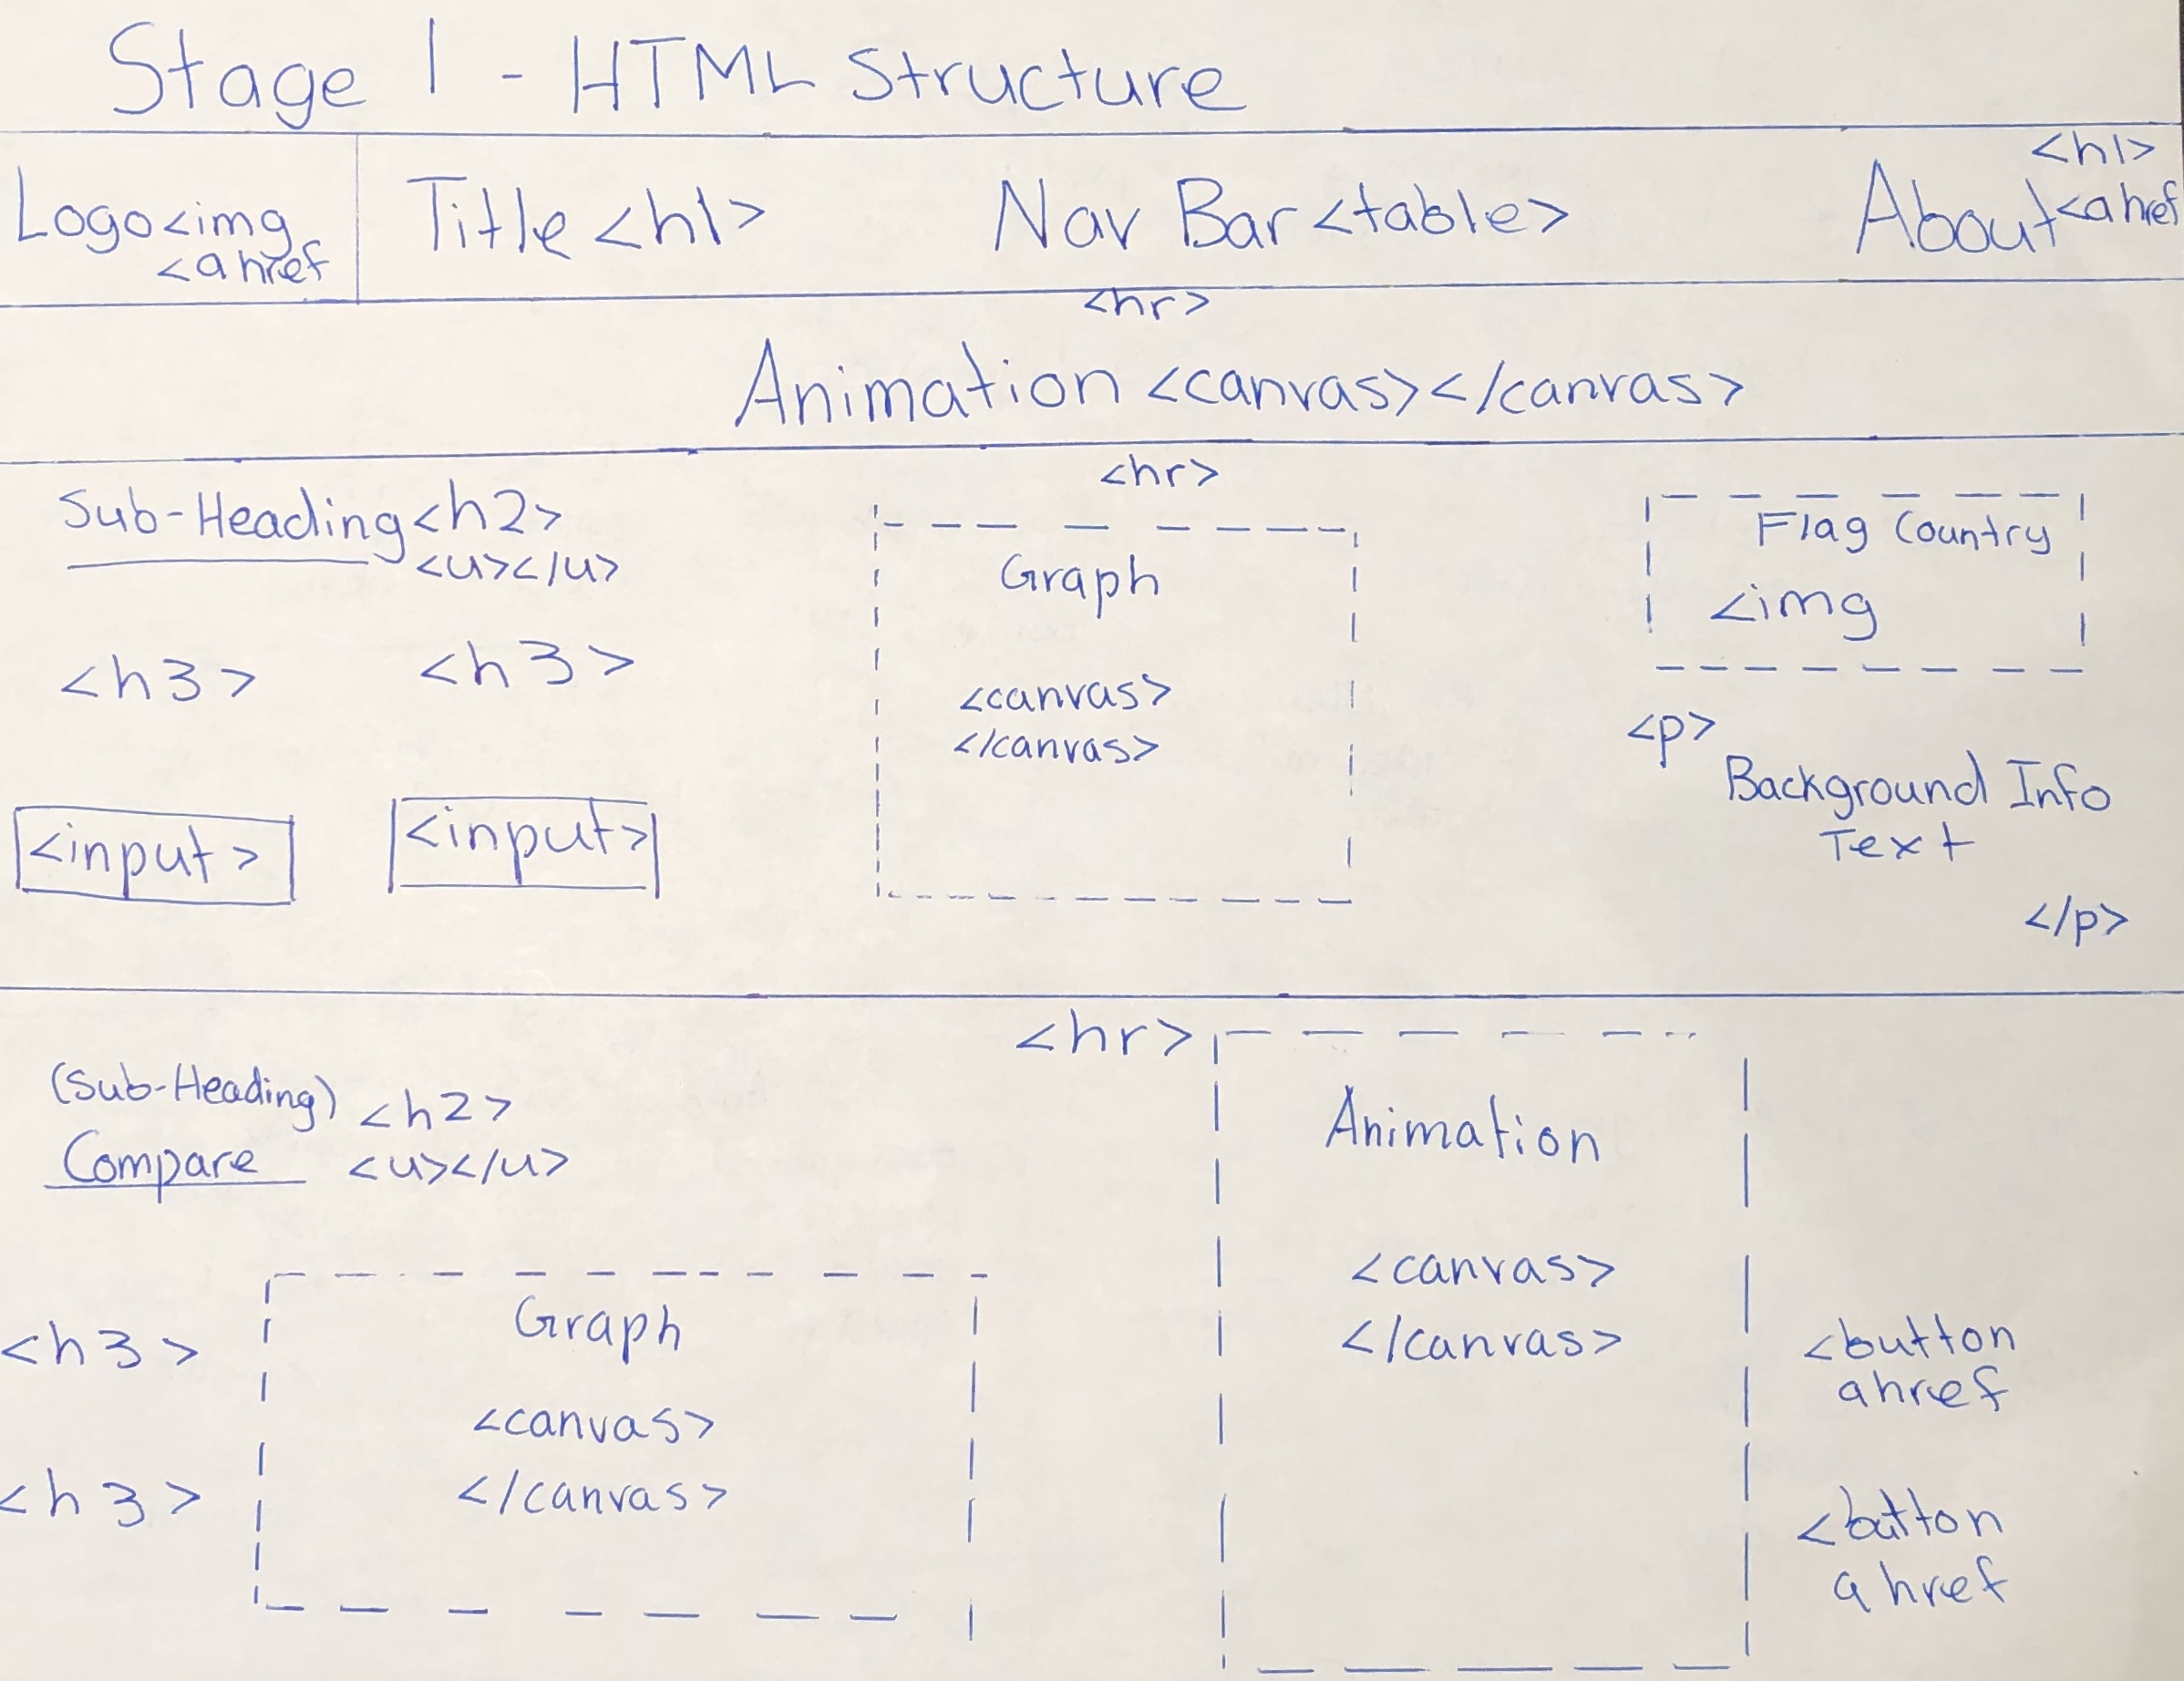 Stage 1 - HTML Structure
Logo <img
<a href
Title <h1>
Nav Bar <table>
<h1>
About <a href
<hr>
Animation <canvas></canvas>
<hr>
Sub-Heading <h2>
<u></u>
<h3> <h3>
<input> <input>
Graph
<canvas>
</canvas>
Flag Country
<img
<p>
Background Info
Text
</p>
<hr>
(Sub-Heading) <h2>
Compare <u></u>
<h3>
<h3>
Graph
<canvas>
</canvas>
Animation
<canvas>
</canvas>
<button
a href
<button
a href